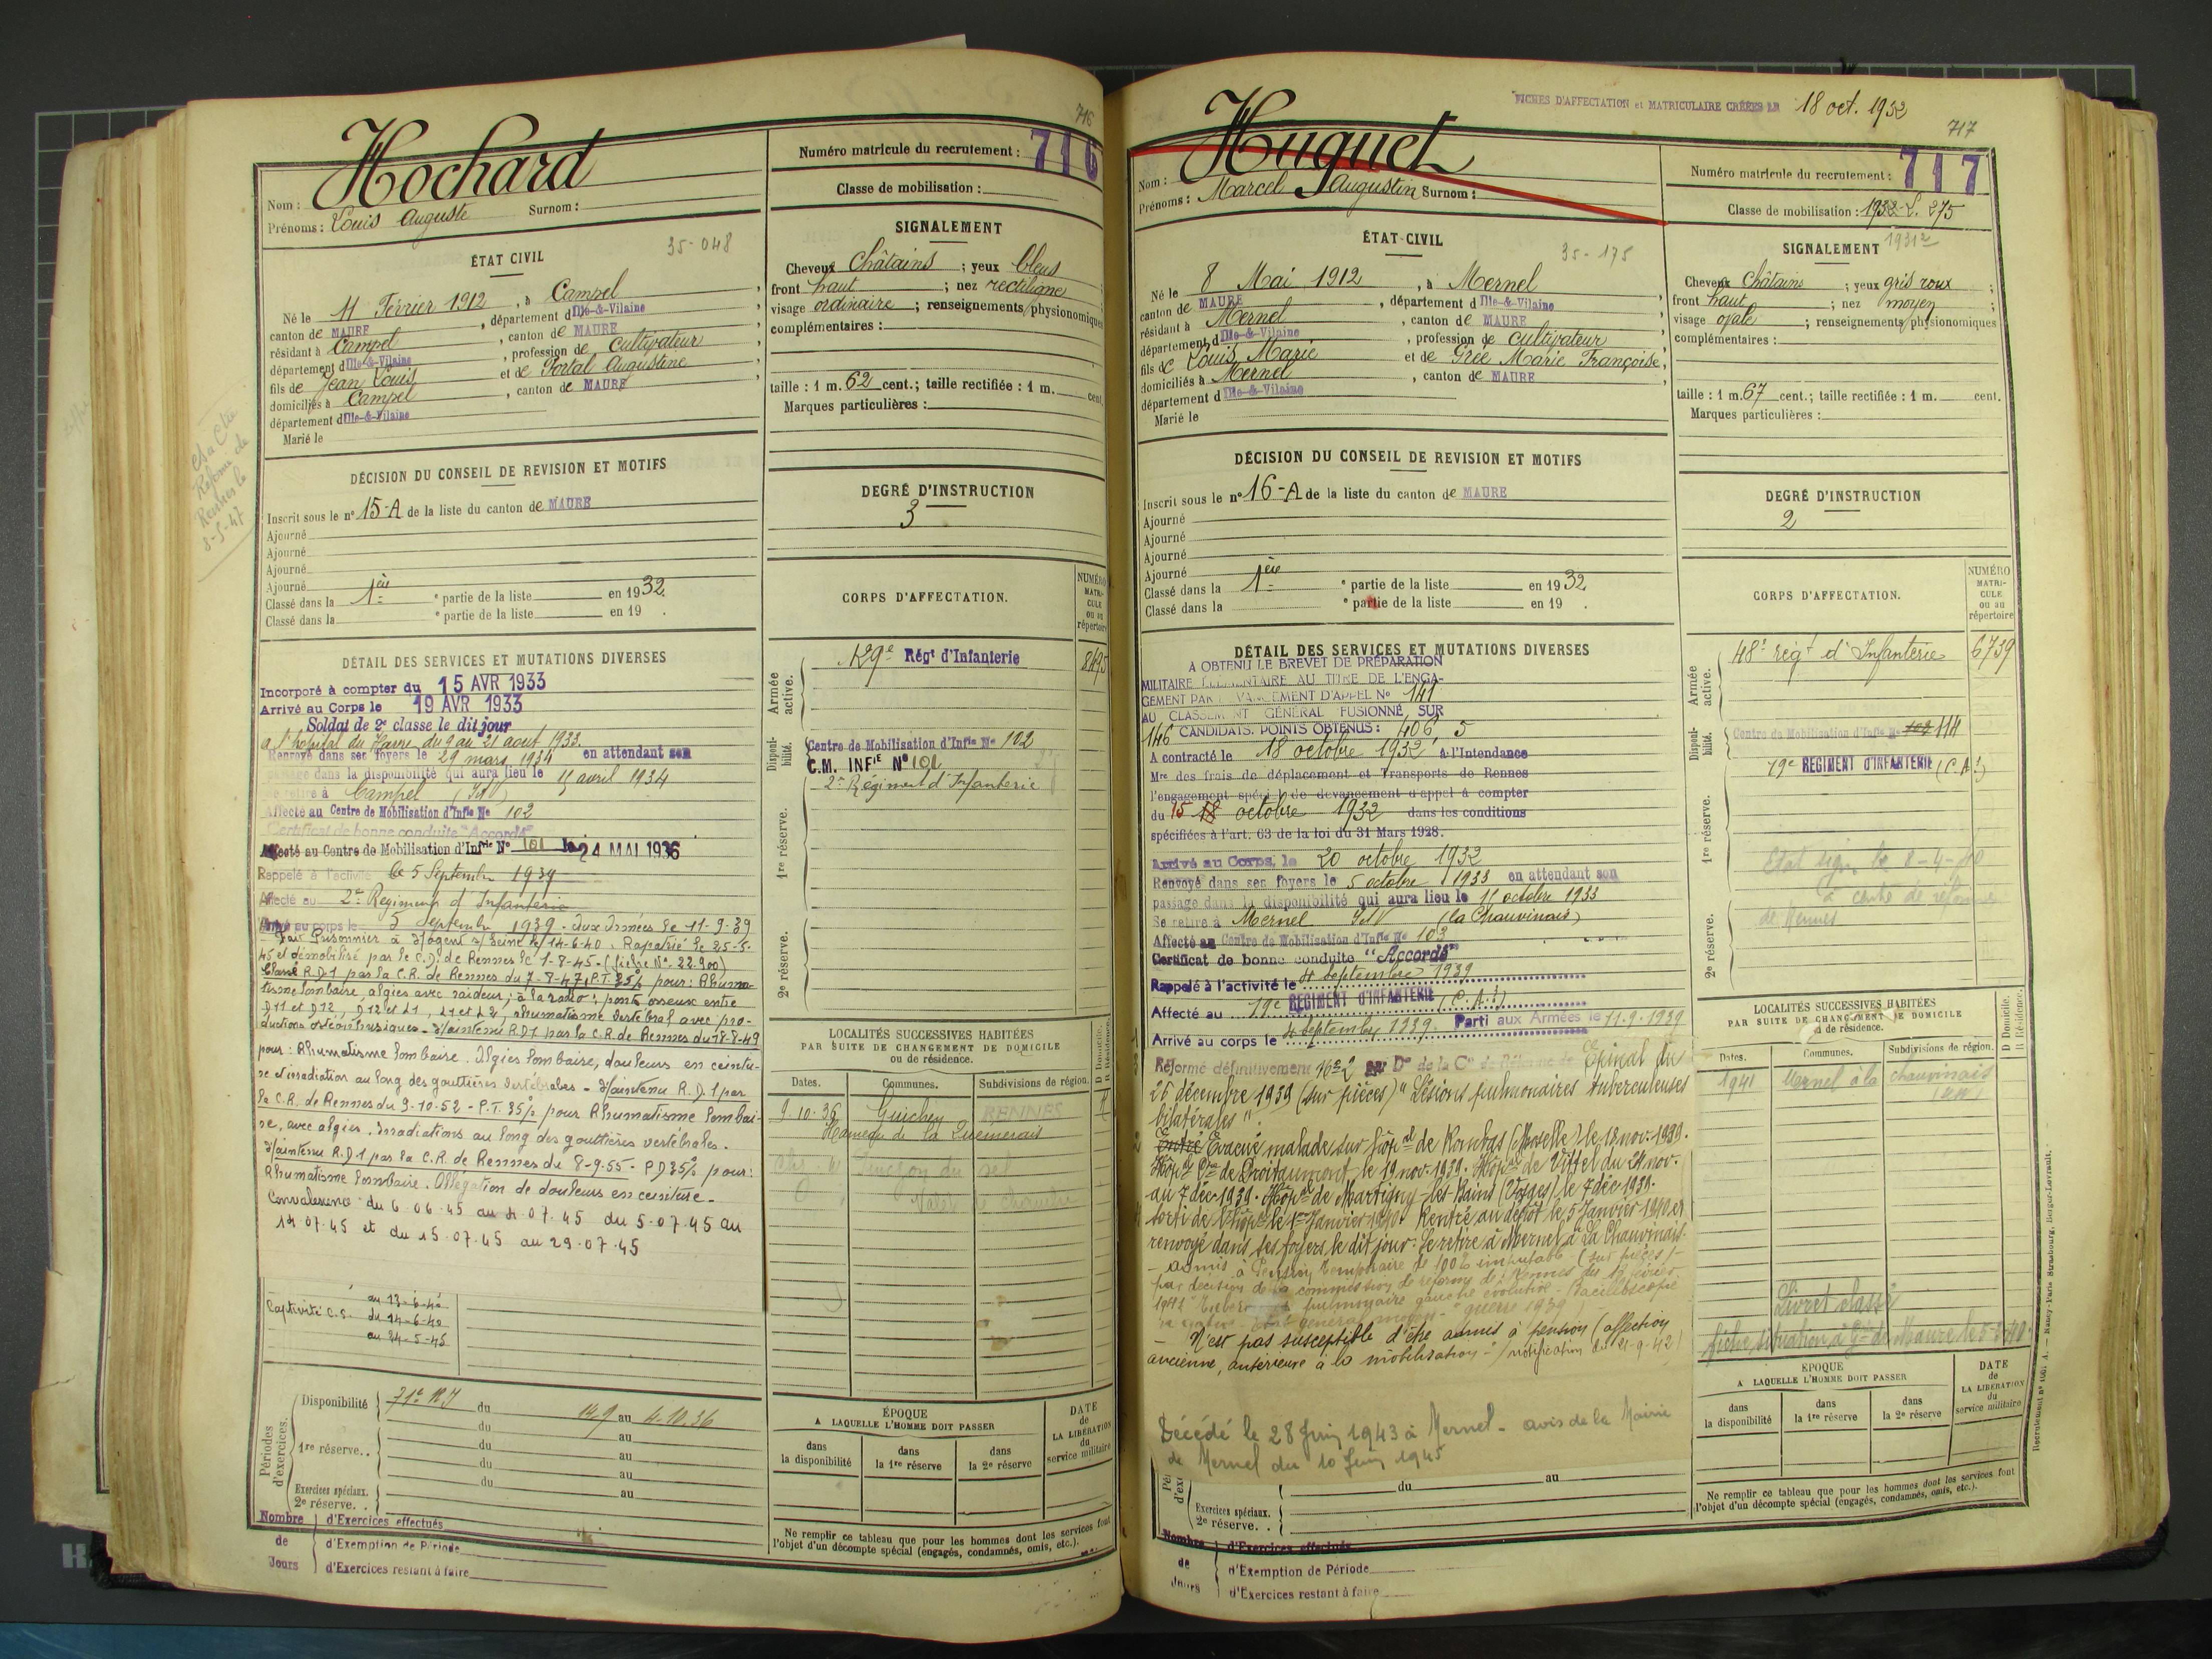 716
Hochard
Nom :
Prénoms : Louis Auguste Surnom :
Numéro matricule du recrutement : 716
Classe de mobilisation :
ÉTAT CIVIL
35-048
Né le 11 Février 1912, à Campel,
canton de MAURE, département d'Ille-&-Vilaine,
résidant à Campel, canton de MAURE,
département d'Ille-&-Vilaine, profession de cultivateur
fils de Jean Louis et de Portal Augustine,
domiciliés à Campel, canton de MAURE,
département d'Ille-&-Vilaine
Marié le
SIGNALEMENT
Cheveux Châtains ; yeux bleus
front haut ; nez rectiligne
visage ordinaire ; renseignements physionomiques
complémentaires :
taille : 1 m. 62 cent.; taille rectifiée : 1 m. cent.
Marques particulières :
Réforme de
Rennes le
8-5-47
DÉCISION DU CONSEIL DE REVISION ET MOTIFS
Inscrit sous le n° 15-A de la liste du canton de MAURE
Ajourné
Ajourné
Ajourné
Ajourné
Classé dans la 1ère ° partie de la liste en 1932.
Classé dans la ° partie de la liste en 19 .
DEGRÉ D'INSTRUCTION
3
CORPS D'AFFECTATION.
NUMÉRO MATRICULE ou au répertoire
DÉTAIL DES SERVICES ET MUTATIONS DIVERSES
Incorporé à compter du 15 AVR 1933
Arrivé au Corps le 19 AVR 1933
Soldat de 2e classe le dit jour
a l'hôpital du Havre du 9 au 21 aout 1933
Renvoyé dans ses foyers le 29 mars 1934 en attendant son
passage dans la disponibilité qui aura lieu le 15 avril 1934
se retire à Campel (I&V)
Affecté au Centre de Mobilisation d'Infie No 102
Certificat de bonne conduite "Accordé"
Affecté au Centre de Mobilisation d'Infrie N° 101 le 24 MAI 1936
Rappelé à l'activité le 5 Septembre 1939
Affecté au 2e Régiment d'Infanterie
Arrivé au corps le 5 Septembre 1939 - aux Armées le 11-9-39
Fait Prisonnier à Nogent s/ Seine le 14-6-40. Rapatrié le 25-5-
45 et démobilisé par le C.D. de Rennes le 1-8-45 - (fiche N° 22.900)
Classé R.D.1 par la C.R. de Rennes du 7-8-47, P.T. 35% pour : Rhuma-
tisme lombaire, algies avec raideur ; à la radio : ponts osseux entre
D11 et D12, D12 et L1, L1 et L2, rhumatisme vertébral avec pro-
ductions ostéophysiques - Maintenu R.D.1 par la C.R. de Rennes du 18-8-49
pour : Rhumatisme lombaire. Algies lombaire, douleurs en ceintu-
re et irradiation au long des gouttières vertébrales - Maintenu R.D.1 par
la C.R. de Rennes du 9-10-52 - P.T. 35% pour Rhumatisme lombai-
re, avec algies. Irradiations au long des gouttières vertébrales.
Maintenu R.D.1 par la C.R. de Rennes du 8-9-55 - P.D 35% pour :
Rhumatisme lombaire. Allégation de douleurs en ceinture -
Convalescence du 6.06.45 au 4.07.45 du 5.07.45 au
14.07.45 et du 15.07.45 au 29.07.45
au 13-6-40
Captivité C.S. du 14-6-40
au 24-5-45
Armée active.
129e Régt d'Infanterie 8495
Disponibilité.
Centre de Mobilisation d'Infie No 102
C.M. INFIE N° 101
2e Régiment d'Infanterie
1re réserve.
2e réserve.
LOCALITÉS SUCCESSIVES HABITÉES
PAR SUITE DE CHANGEMENT DE DOMICILE
ou de résidence.
Dates. Communes. Subdivisions de région. D Domicile. R Résidence.
9.10.36 Guichen RENNES R
Hameau de la Quémerais
Périodes d'exercices.
Disponibilité 71e R.I du 14.9 au 4.10.36
du au
1re réserve.. du au
du au
du au
Exercices spéciaux. au
2e réserve. .
ÉPOQUE
A LAQUELLE L'HOMME DOIT PASSER
dans la disponibilité
dans la 1re réserve
dans la 2e réserve
DATE de LA LIBÉRATION du service militaire
Ne remplir ce tableau que pour les hommes dont les services font
l'objet d'un décompte spécial (engagés, condamnés, omis, etc.).
Nombre de Jours
d'Exercices effectués
d'Exemption de Période
d'Exercices restant à faire
FICHES D'AFFECTATION et MATRICULAIRE CRÉÉES LE 18 oct. 1932
717
Huguet
Nom :
Prénoms : Marcel Augustin Surnom :
Numéro matricule du recrutement : 717
Classe de mobilisation : 1932-S. 275
ÉTAT-CIVIL
35-175
Né le 8 Mai 1912, à Mernel
canton de MAURE, département d'Ille-&-Vilaine,
résidant à Mernel, canton de MAURE
département d'Ille-&-Vilaine, profession de cultivateur
fils de Louis Marie et de Grée Marie Françoise,
domiciliés à Mernel, canton de MAURE,
département d'Ille-&-Vilaine
Marié le
SIGNALEMENT
Cheveux Châtains ; yeux gris roux ;
front haut ; nez moyen ;
visage ovale ; renseignements physionomiques
complémentaires :
taille : 1 m. 67 cent.; taille rectifiée : 1 m. cent.
Marques particulières :
DÉCISION DU CONSEIL DE REVISION ET MOTIFS
Inscrit sous le n° 16-A de la liste du canton de MAURE
Ajourné
Ajourné
Ajourné
Ajourné
Classé dans la 1ère ° partie de la liste en 1932
Classé dans la ° partie de la liste en 19 .
DEGRÉ D'INSTRUCTION
2
CORPS D'AFFECTATION.
NUMÉRO MATRICULE ou au répertoire
DÉTAIL DES SERVICES ET MUTATIONS DIVERSES
A OBTENU LE BREVET DE PRÉPARATION
MILITAIRE ÉLÉMENTAIRE AU TITRE DE L'ENGA-
GEMENT PAR DEVANCEMENT D'APPEL No 141
AU CLASSEMENT GÉNÉRAL FUSIONNÉ SUR
146 CANDIDATS. POINTS OBTENUS : 406,5
A contracté le 18 octobre 1932 à l'Intendance
Mre des frais de déplacement et Transports de Rennes
l'engagement spécial de devancement d'appel à compter
du 15 18 octobre 1932 dans les conditions
spécifiées à l'art. 63 de la loi du 31 Mars 1928.
Arrivé au Corps, le 20 octobre 1932
Renvoyé dans ses foyers le 5 octobre 1933 en attendant son
passage dans la disponibilité qui aura lieu le 15 octobre 1933
Se retire à Mernel I&V (la Chauvinais)
Affecté au Centre de Mobilisation d'Infie No 103
Certificat de bonne conduite "Accordé"
Rappelé à l'activité le 4 septembre 1939
Affecté au 19e RÉGIMENT D'INFANTERIE (C.A1)
Arrivé au corps le 4 septembre 1939. Parti aux Armées le 11.9.1939
Réformé définitivement N° 2 par Don de la Con de Réforme de Epinal du
26 décembre 1939 (sur pièces) "Lésions pulmonaires tuberculeuses
bilatérales".
Entré Evacué malade sur hôpal de Kombas (Moselle) le 18 nov. 1939.
Hôpal Ctre de Droitaumont le 19 nov. 1939. Hôpal de Vittel du 24 nov.
au 7 déc. 1939. Hôpal de Martigny-les-Bains (Vosges) le 7 déc. 1939.
sorti de l'hôpal le 1er Janvier 1940. Rentré au dépôt le 5 Janvier 1940 et
renvoyé dans ses foyers le dit jour. Se retire à Mernel à La Chauvinais.
- admis à Pension temporaire de 100% imputable (sur pièces)
par décision de la commission de réforme de Rennes du
1942 pulmonaire gauche évolutive - Bacilloscopie
guerre 1939
- N'est pas susceptible d'être admis à pension (affection
ancienne, antérieure à la mobilisation - (notification du 21-9-42)
Décédé le 28 Juin 1943 à Mernel - avis de la Mairie
de Mernel du 10 Juin 1945
Armée active.
48e régt d'Infanterie 6739
Disponibilité.
Centre de Mobilisation d'Infie No 103 114
19e RÉGIMENT D'INFANTERIE (C.A1)
1re réserve.
Etat sign. le 8-4-40
à centre de réforme
de Rennes
2e réserve.
LOCALITÉS SUCCESSIVES HABITÉES
PAR SUITE DE CHANGEMENT DE DOMICILE
ou de résidence.
Dates. Communes. Subdivisions de région. D Domicile. R Résidence.
1941 Mernel à la chauvinais
Livret classé
fiche situation à Gie de Maure le 5-3-40.
du au
Exercices spéciaux.
2e réserve. .
ÉPOQUE
A LAQUELLE L'HOMME DOIT PASSER
dans la disponibilité
dans la 1re réserve
dans la 2e réserve
DATE de LA LIBÉRATION du service militaire
Ne remplir ce tableau que pour les hommes dont les services font
l'objet d'un décompte spécial (engagés, condamnés, omis, etc.).
Nombre de Jours
d'Exercices effectués
d'Exemption de Période
d'Exercices restant à faire
Nancy-Paris-Strasbourg, Berger-Levrault.